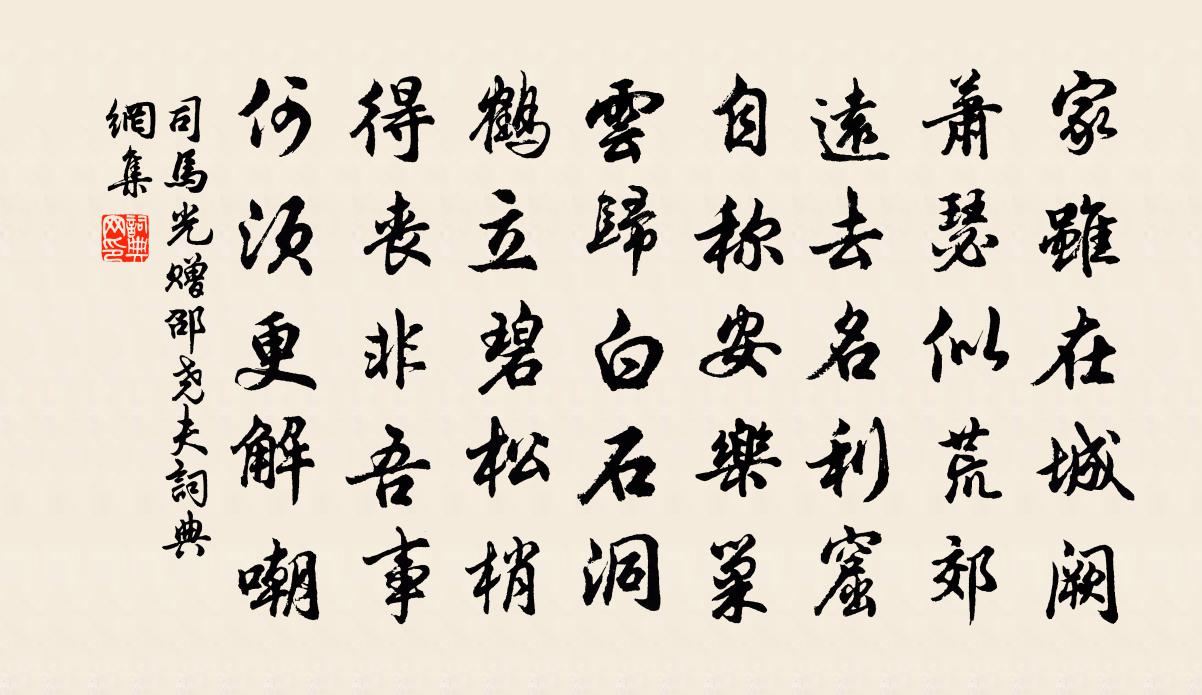 家雖在城阙
蕭瑟似荒郊
遠去名利窟
自称安樂巢
雲歸白石洞
鶴立碧松梢
得丧非吾事
何须更解嘲
司馬光赠邵尧夫詞典
網集
詞典網印